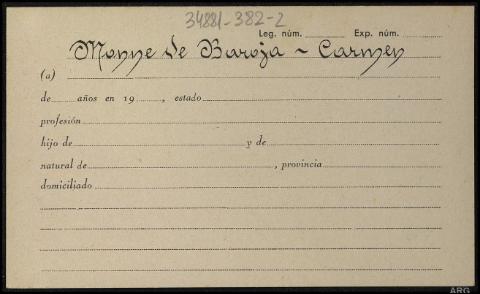 34881-382-2
Leg. núm. Exp. núm.
Monne de Baroja - Carmen
(a)
de años en 19 , estado
profesión
hijo de y de
natural de , provincia
domiciliado
ARG